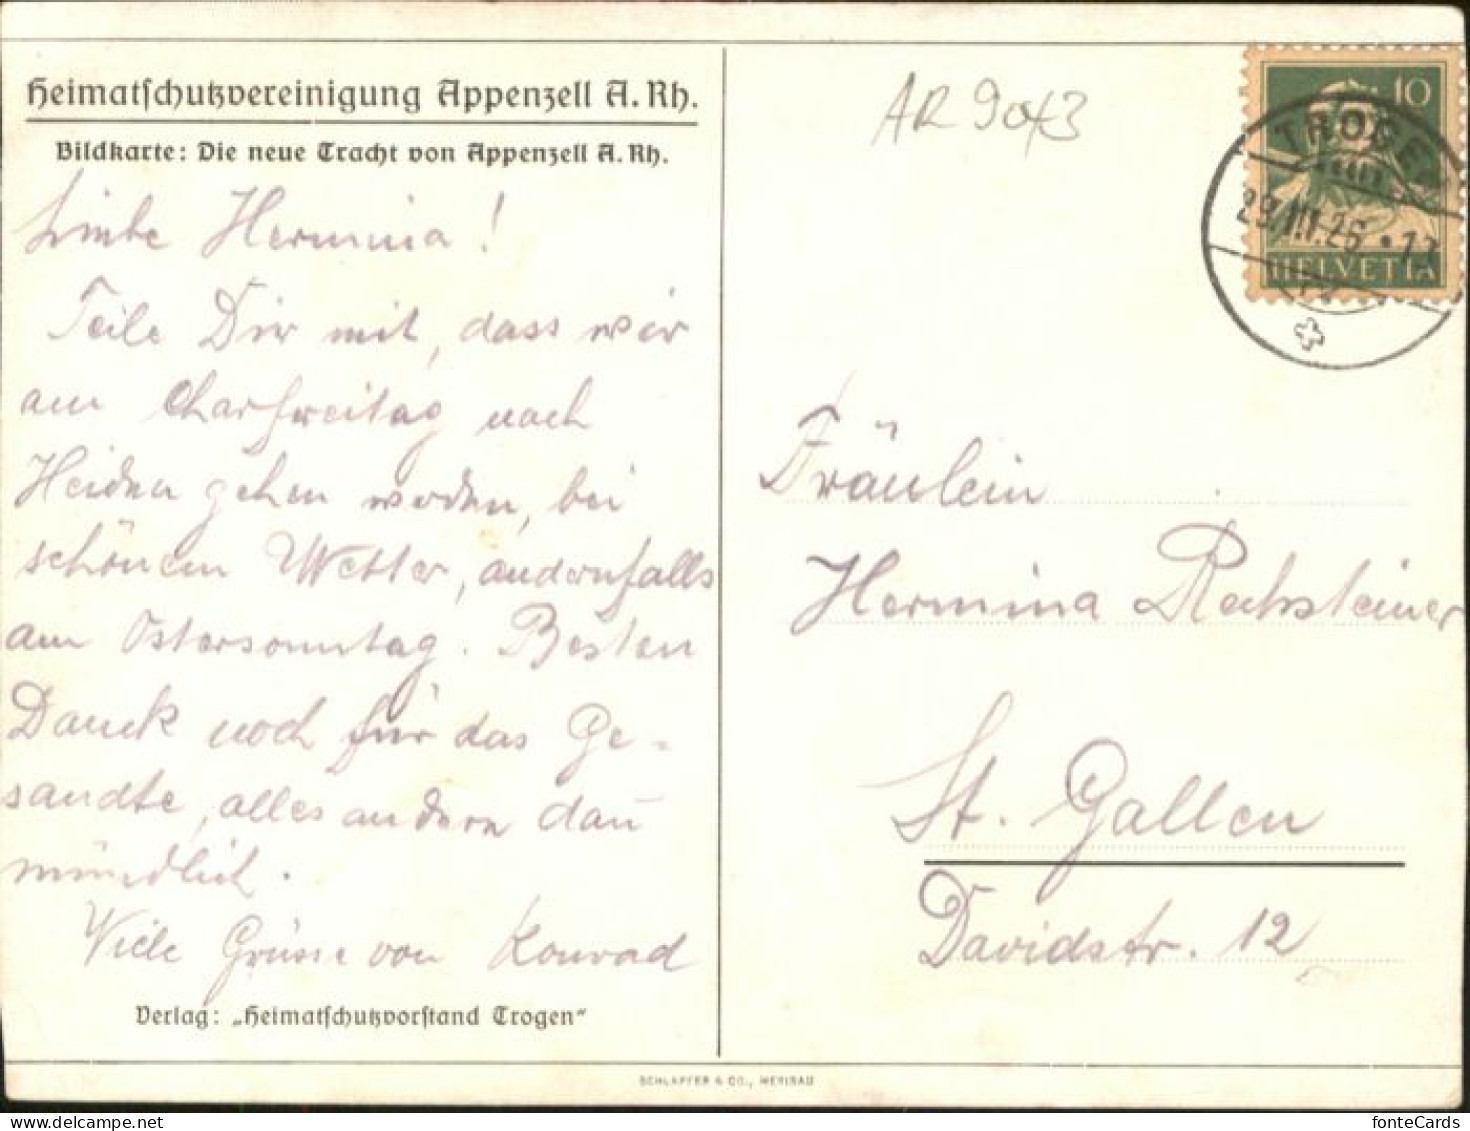 Heimatschutzvereinigung Appenzell A. Rh.
Bildkarte: Die neue Tracht von Appenzell A. Rh.
Liebe Hermina!
Teile Dir mit, dass wir
am Charfreitag nach
Heiden gehen werden, bei
schönem Wetter, andernfalls
am Ostersonntag. Besten
Dank noch für das Ge-
sandte, alles andere dan̄
mündlich.
Viele Grüsse von Konrad
Verlag: „Heimatschutzvorstand Trogen"
AR 9043
10
HELVETIA
TROGEN
29.III.26
Fräulein
Hermina Rechsteiner
St. Gallen
Davidstr. 12
SCHLÄPFER & CO., HERISAU
fonteCards